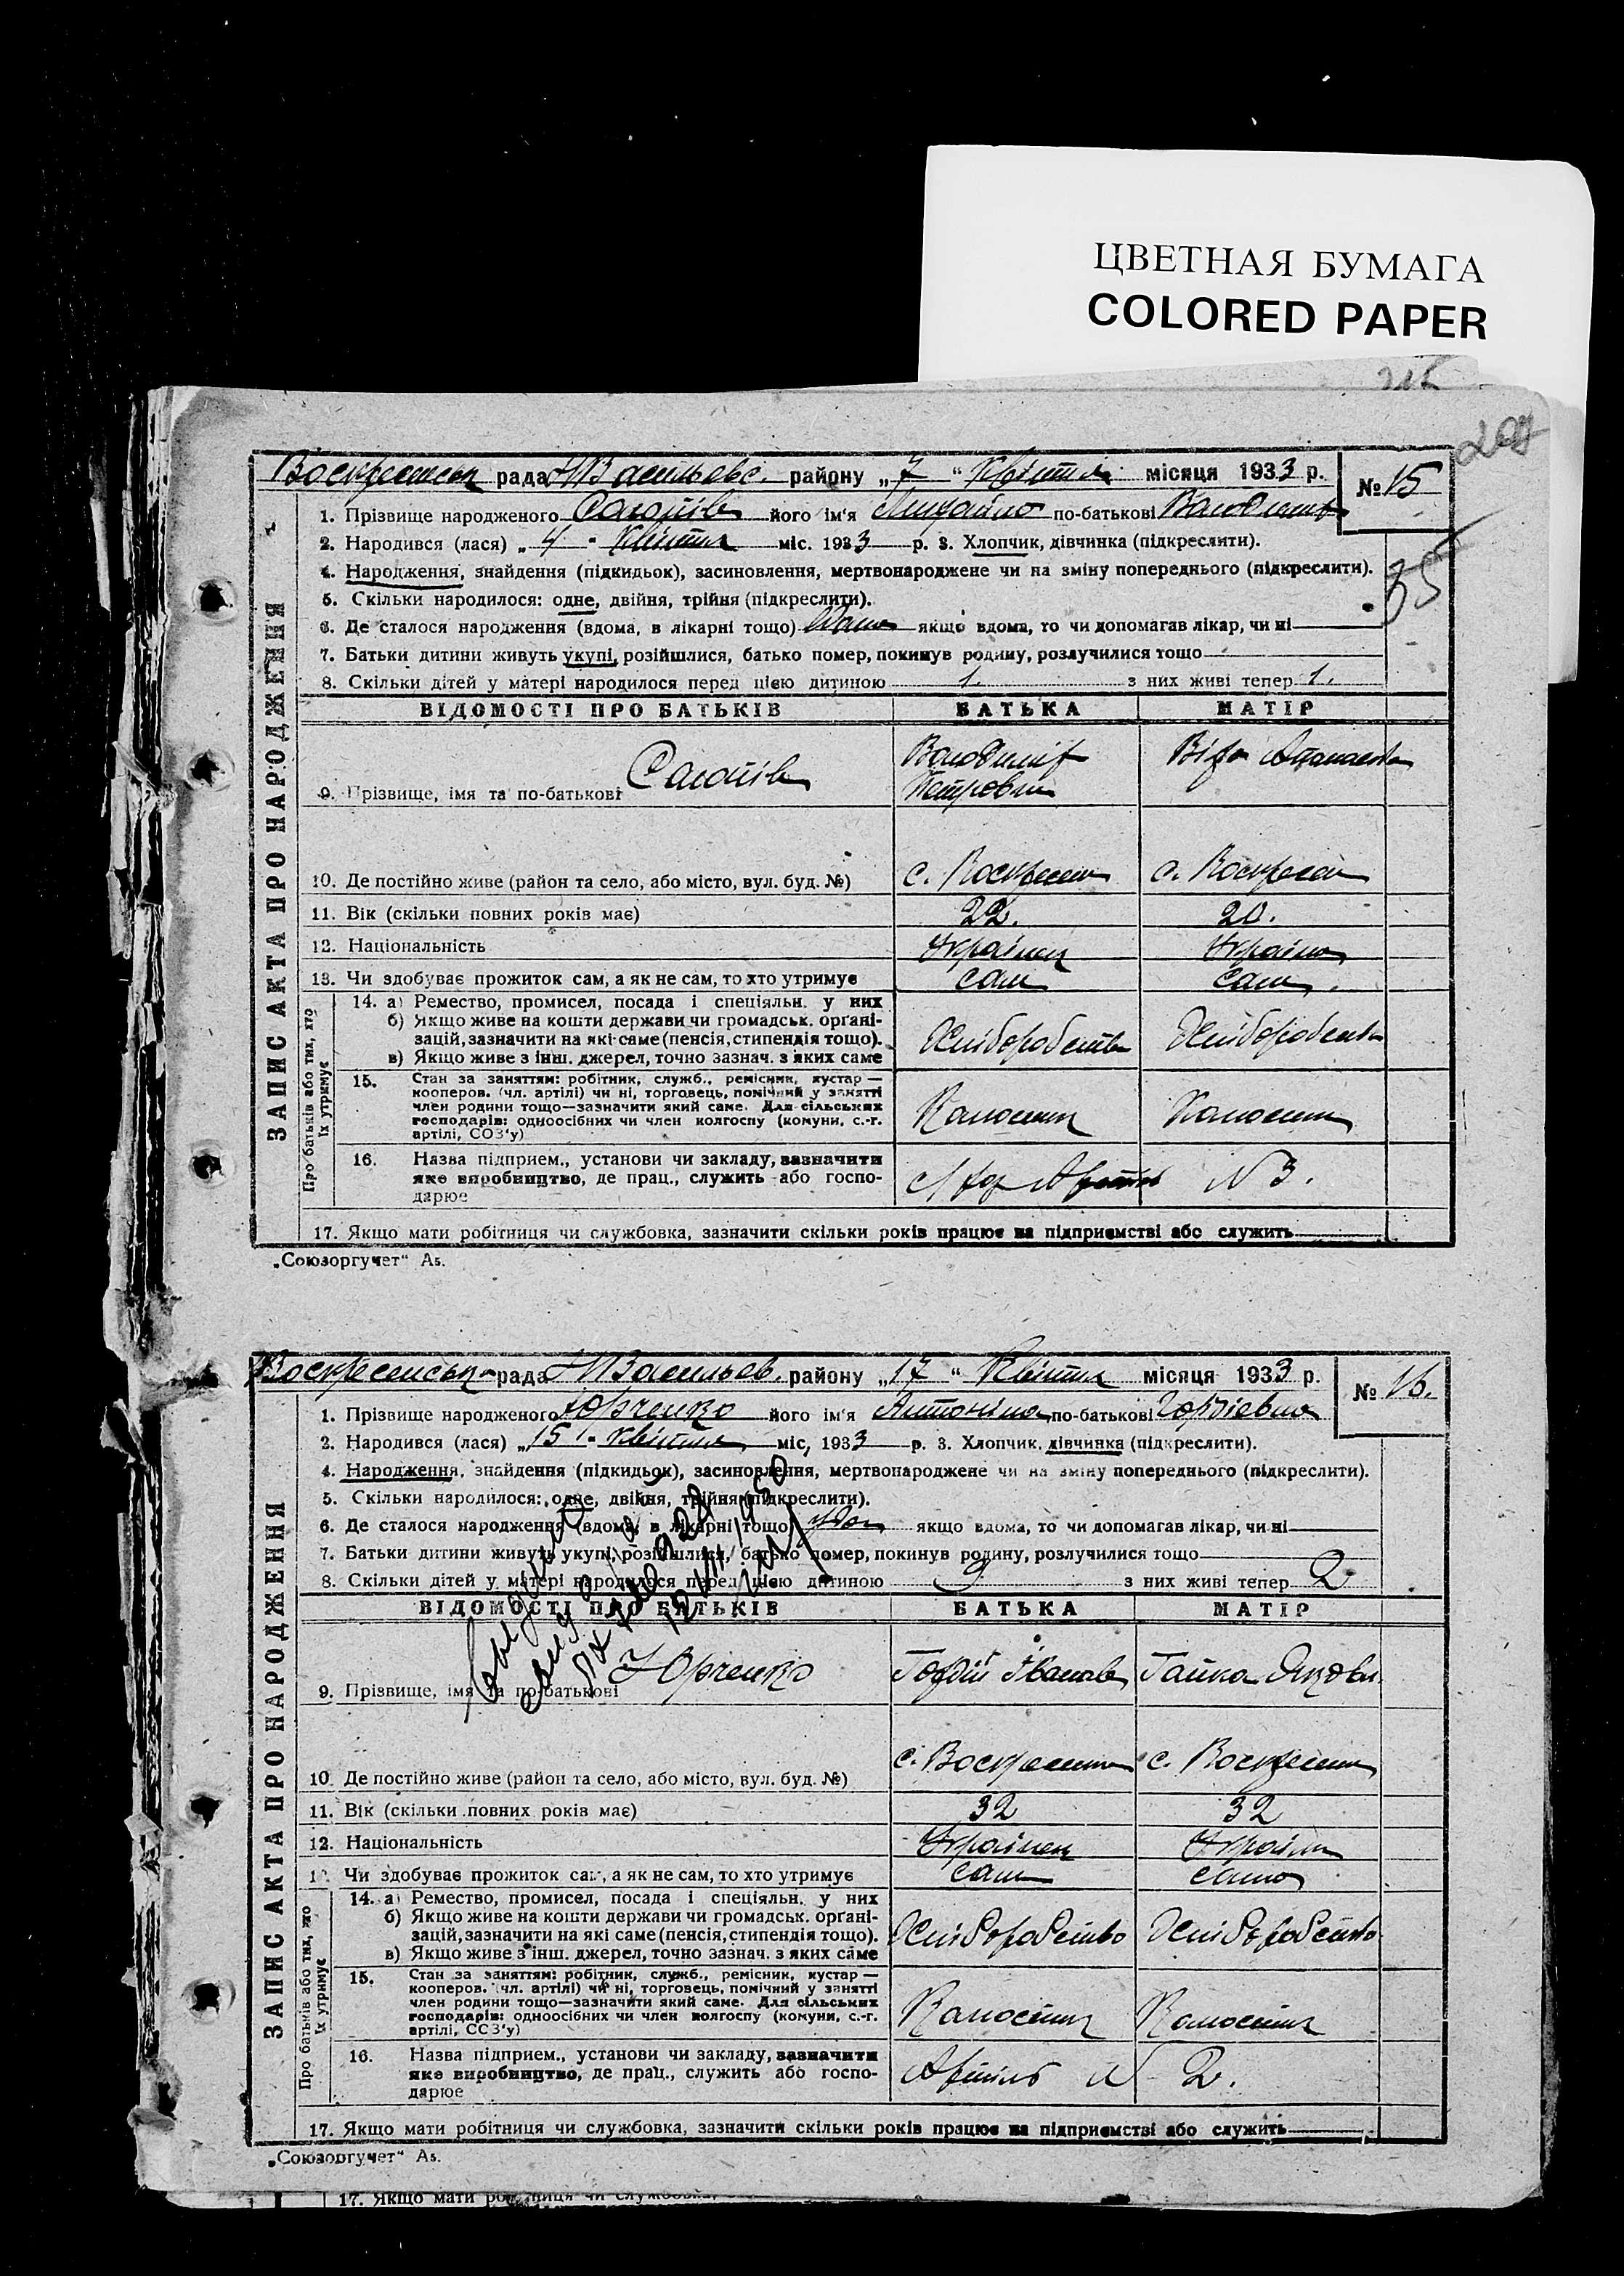 ЦВЕТНАЯ БУМАГА
COLORED PAPER
215
ЗАПИС АКТА ПРО НАРОДЖЕННЯ
Воскресенськ рада НВасильевс. району „7“ Квітня місяця 1933 р. № 15
1. Прізвище народженого його ім'я Михайло по-батькові Володимир
2. Народився (лася) „4“ Квітня міс. 1933 р. 3. Хлопчик, дівчинка (підкреслити).
4. Народження, знайдення (підкидьок), засиновлення, мертвонароджене чи на зміну попереднього (підкреслити).
35
5. Скільки народилося: одне, двійня, трійня (підкреслити).
6. Де сталося народження (вдома, в лікарні тощо) якщо вдома, то чи допомагав лікар, чи ні
7. Батьки дитини живуть укупі, розійшлися, батько помер, покинув родину, розлучилися тощо
8. Скільки дітей у матері народилося перед цією дитиною 1. з них живі тепер 1.
ВІДОМОСТІ ПРО БАТЬКІВ БАТЬКА МАТІР
9. Прізвище, імя та по-батькові Володимір Петрович Віра
10. Де постійно живе (район та село, або місто, вул. буд. №) с. Воскресен с. Воскресен
11. Вік (скільки повних років має) 22. 20.
12. Національність Українец Україн
13. Чи здобуває прожиток сам, а як не сам, то хто утримує сам сам
Про батьків або тих, хто їх утримує
14. а) Ремество, промисел, посада і спеціяльн. у них
б) Якщо живе на кошти держави чи громадськ. органі-
зацій, зазначити на які саме (пенсія, стипендія тощо). Хліборобств Хліборобств
в) Якщо живе з інш. джерел, точно зазнач. з яких саме
15. Стан за заняттям: робітник, служб., ремісник, кустар —
кооперов. (чл. артілі) чи ні, торговець, помічний у занятті
член родини тощо—зазначити який саме. Для сільських
господарів: одноосібних чи член колгоспу (комуни, с.-г. Колосппн Колосппн
артілі, СОЗ'у)
16. Назва підприєм., установи чи закладу, зазначити
яке виробництво, де прац., служить або госпо- Артіль N 3.
дарює
17. Якщо мати робітниця чи службовка, зазначити скільки років працює на підприємстві або служить
„Союзоргучет“ А5.
ЗАПИС АКТА ПРО НАРОДЖЕННЯ
Воскресенська рада НВасильев. району „17“ Квітня місяця 1933 р. № 16.
1. Прізвище народженого Юрченко його ім'я Антоніна по-батькові Гордіевна
2. Народився (лася) „15“ квітня міс, 1933 р. 3. Хлопчик, дівчинка (підкреслити).
4. Народження, знайдення (підкидьок), засиновлення, мертвонароджене чи на зміну попереднього (підкреслити).
5. Скільки народилося: одне, двійня, трійня (підкреслити).
6. Де сталося народження (вдома, в лікарні тощо) якщо вдома, то чи допомагав лікар, чи ні
7. Батьки дитини живуть укупі, розійшлися, батько помер, покинув родину, розлучилися тощо
8. Скільки дітей у матері народилося перед цією дитиною 9 з них живі тепер 2
ВІДОМОСТІ ПРО БАТЬКІВ БАТЬКА МАТІР
9. Прізвище, імя та по-батькові Юрченко Гордій Іванов Ганна Яковл.
10. Де постійно живе (район та село, або місто, вул. буд. №) с. Воскресенк с. Воскресенк
11. Вік (скільки повних років має) 32 32
12. Національність Українец Україн
13. Чи здобуває прожиток сам, а як не сам, то хто утримує сам сама
Про батьків або тих, хто їх утримує
14. а) Ремество, промисел, посада і спеціяльн. у них
б) Якщо живе на кошти держави чи громадськ. органі-
зацій, зазначити на які саме (пенсія, стипендія тощо). Хліборобство Хліборобство
в) Якщо живе з інш. джерел, точно зазнач. з яких саме
15. Стан за заняттям: робітник, служб., ремісник, кустар —
кооперов. (чл. артілі) чи ні, торговець, помічний у занятті
член родини тощо—зазначити який саме. Для сільських
господарів: одноосібних чи член колгоспу (комуни, с.-г.
артілі, СОЗ'у)
16. Назва підприєм., установи чи закладу, зазначити
яке виробництво, де прац., служить або госпо- Артіль N 2.
дарює
17. Якщо мати робітниця чи службовка, зазначити скільки років працює на підприємстві або служить
„Союзоргучет“ А5.
17. Якщо мати робітниця чи службовка,